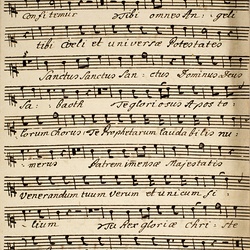 Confitemur Tibi omnes Angeli
tibi Cœli et universæ Potestates
Sanctus Sanctus Sanctus Dominus Deus
Sabaoth Te gloriosus Aposto
lorum Chorus Te Prophetarum laudabilis nu
merus Patrem imensæ Majestatis
Venerandum tuum Verum et unicum fi
lium Tu Rex gloriæ Christe